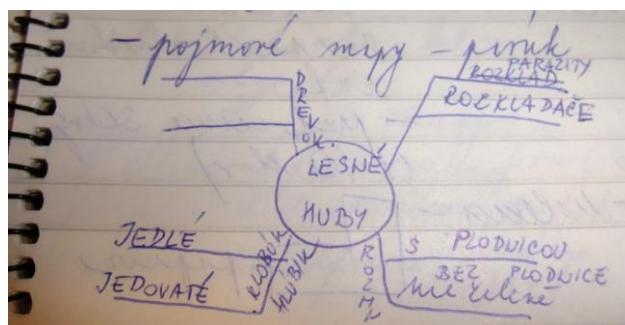 - pojmové mapy - pisúk
PARAZITY
ROZKLAD
ROZKLADAČE
DREVOK.
LESNÉ
HUBY
JEDLÉ
JEDOVATÉ
KLOBÚK
HLÚBIK
ROZMN
S PLODNICOU
BEZ PLODNICE